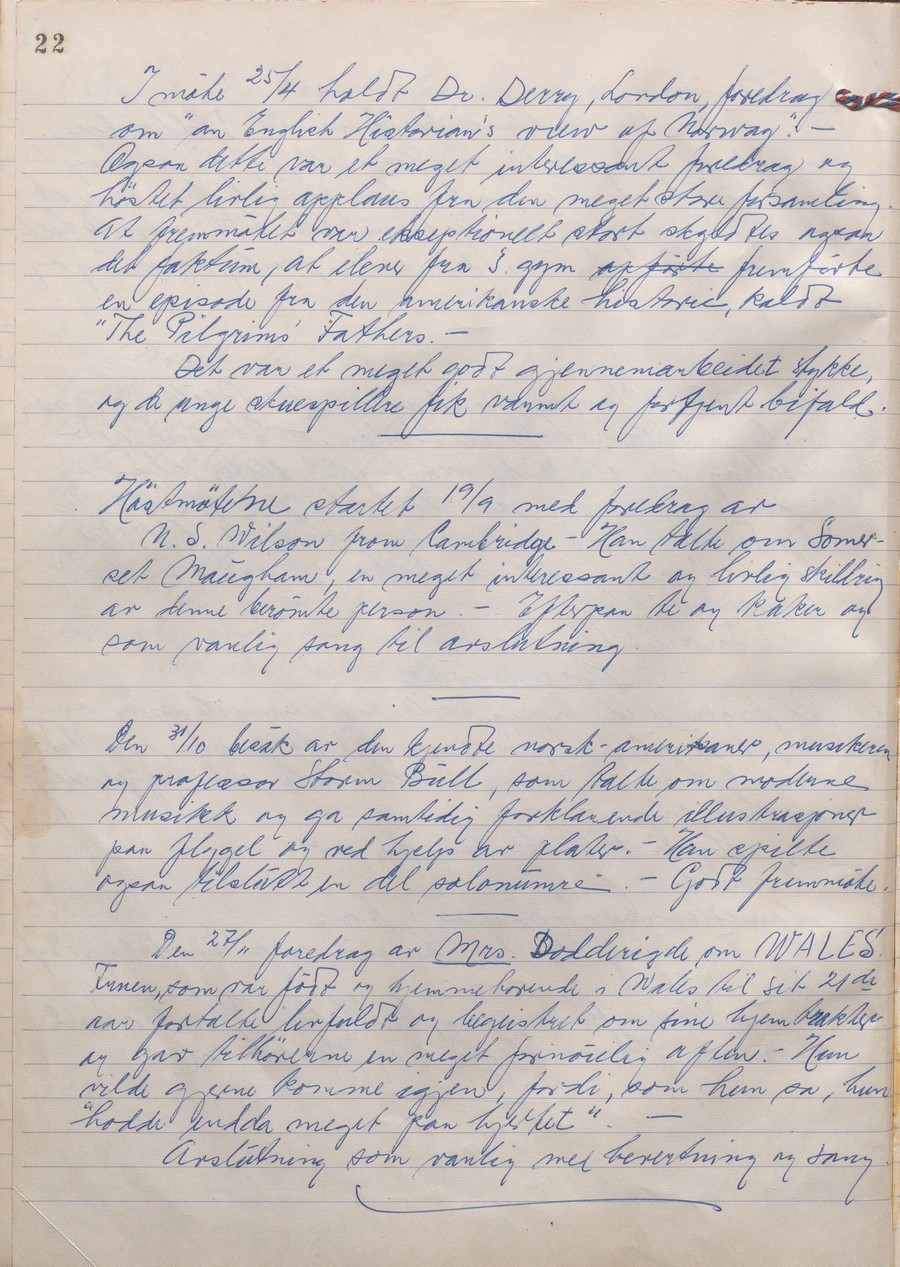 22
I møte 25/4 holdt Dr. Derry, London, foredrag
om "an English Historian's view of Norway". –
Ogsaa dette var et meget interessant foredrag og
høstet livlig applaus fra den meget store forsamling.
At fremmøtet var ekseptionelt stort skyldtes ogsaa
det faktum, at elever fra 3. gym opførte fremførte
en episode fra den amerikanske historie, kaldt
"The Pilgrims' Fathers. –
Det var et meget godt gjennemarbeidet stykke,
og de unge skuespillere fik varmt og fortjent bifald.
Høstmøtene startet 19/9 med foredrag av
N. S. Wilson from Cambridge – Han talte om Somer-
set Maugham, en meget interessant og livlig skildring
av denne berømte person. – Efterpaa te og kaker og
som vanlig sang til avslutning.
Den 31/10 besøk av den kjendte norsk-amerikaner, musikeren
og professor Storm Bull, som talte om moderne
musikk og ga samtidig forklarende illustrasjoner
paa flygel og ved hjelp av plater. – Han spilte
ogsaa tilslutt en del solonumre. – Godt fremmøte.
Den 27/11 foredrag av Mrs. Dodderigde om WALES.
Fruen, som var født og hjemmehørende i Wales til sit 21de
aar fortalte livfuldt og begeistret om sine hjemtrakter
og gav tilhørerne en meget fornøielig aften. – Hun
vilde gjerne komme igjen, fordi, som hun sa, hun
"hadde endda meget paa hjertet". –
Avslutning som vanlig med bevertning og sang.